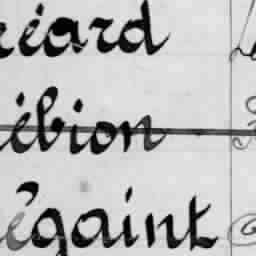 réard
ébion
égaint